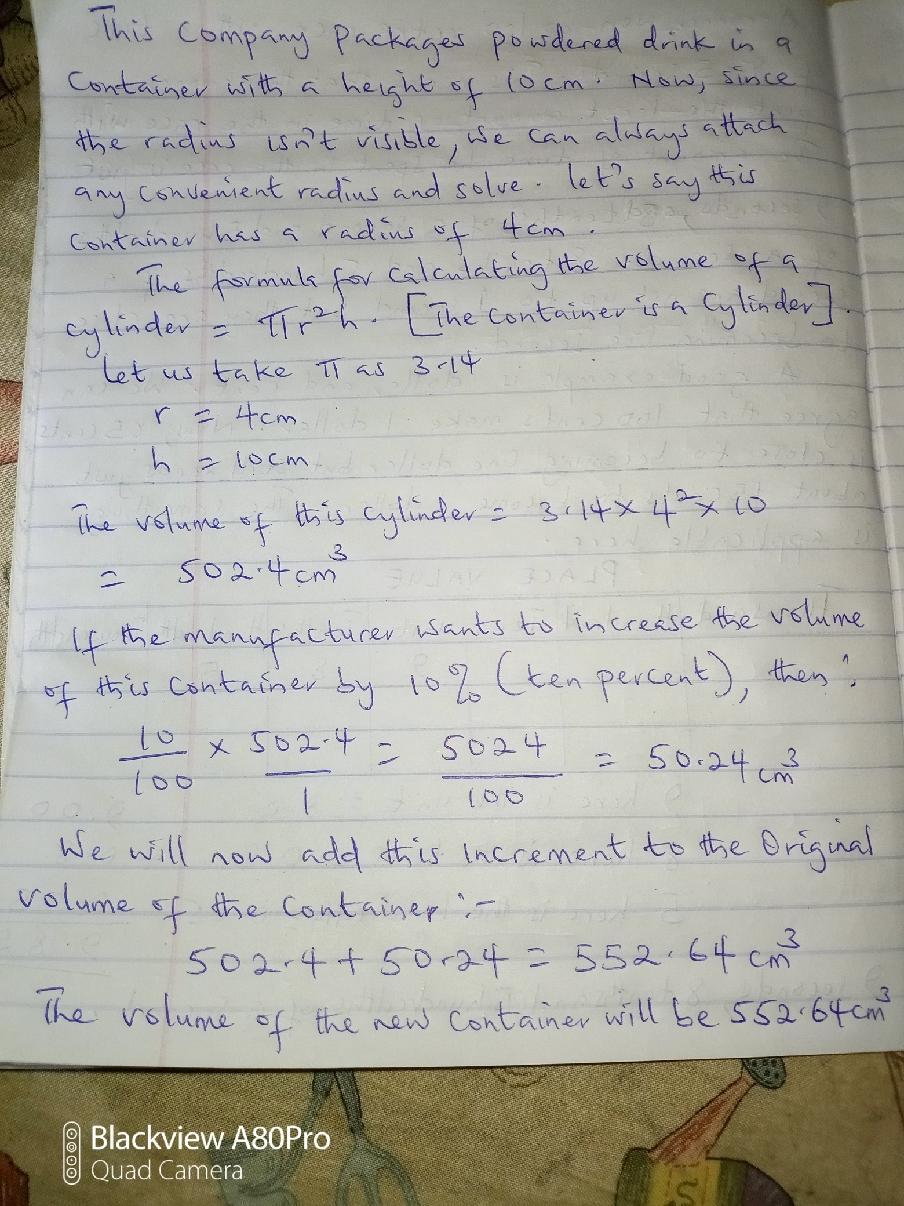 This Company Packages powdered drink in a
Container with a height of 10cm. Now, since
the radius isn't visible, we can always attach
any convenient radius and solve. let's say this
Container has a radius of 4cm.
The formula for calculating the volume of a
cylinder = πr²h. [The container is a Cylinder].
Let us take π as 3.14
r = 4cm
h = 10cm
The volume of this cylinder = 3.14 x 4² x 10
= 502.4cm³
If the manufacturer wants to increase the volume
of this Container by 10% (ten percent), then:
10/100 x 502.4/1 = 5024/100 = 50.24cm³
We will now add this increment to the Original
volume of the Container :-
502.4 + 50.24 = 552.64 cm³
The volume of the new Container will be 552.64cm³
Blackview A80Pro
Quad Camera